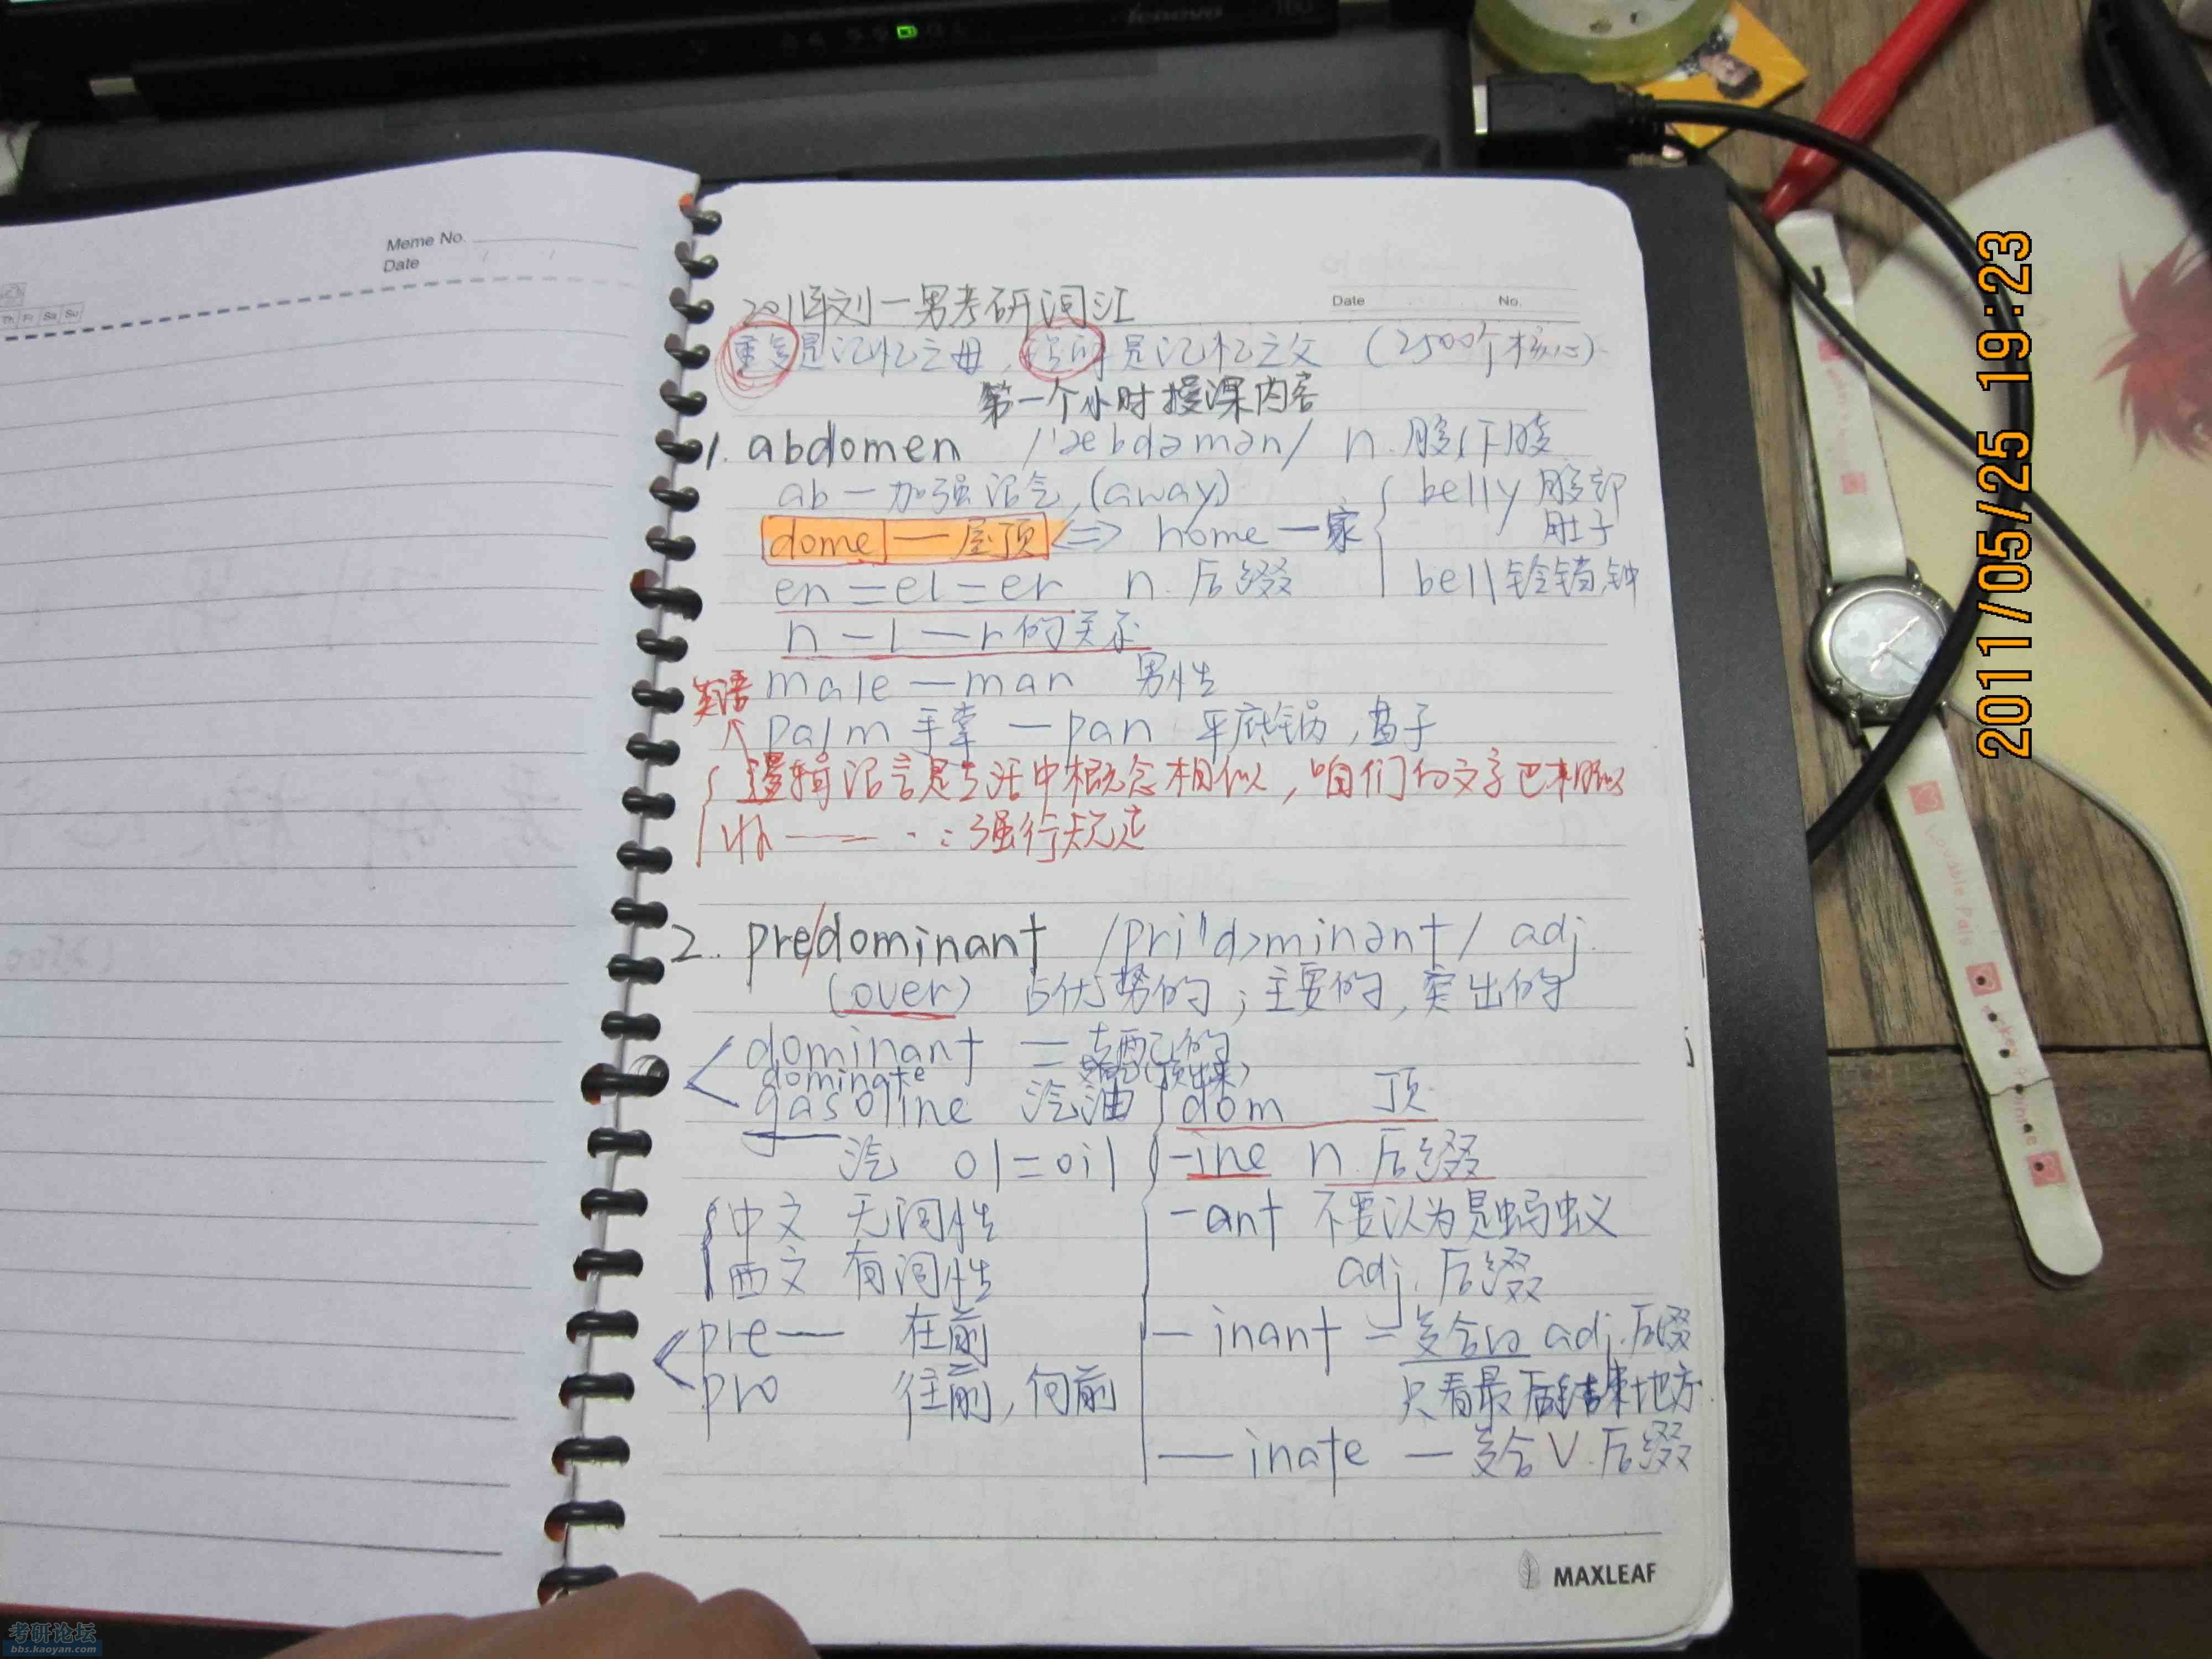 lenovo
Meme No.
Date
Th Fr Sa Su
Date No.
2011年刘一男考研词汇
重复是记忆之母，是记忆之父 (2500个核心)
第一个小时授课内容
1. abdomen /'æbdəmən/ n. 腹,下腹
ab — 加强语气,(away)
belly 腹部
肚子
dome — 屋顶 <=> home — 家
en = el = er n. 后缀
bell 铃铛,钟
n — l — r 的关系
male — man 男性
英语
palm 手掌 — pan 平底锅,盘子
逻辑语言是生活中概念相似，咱们的文字也相似
强行规定
2. pre/dominant /pri'dɔminənt/ adj.
(over) 占优势的；主要的,突出的
dominant = 支配的
dominate 支配(顶出来)
gasoline 汽油
dom 顶
汽 ol = oil
-ine n. 后缀
中文 无词性
西文 有词性
-ant 不要认为是蚂蚁
adj. 后缀
pre — 在前
pro 往前,向前
— inant = 复合的 adj. 后缀
只看最后结束地方.
— inate — 复合 V. 后缀
MAXLEAF
2011/05/25 19:23
Lovable Pals
考研论坛
bbs.kaoyan.com